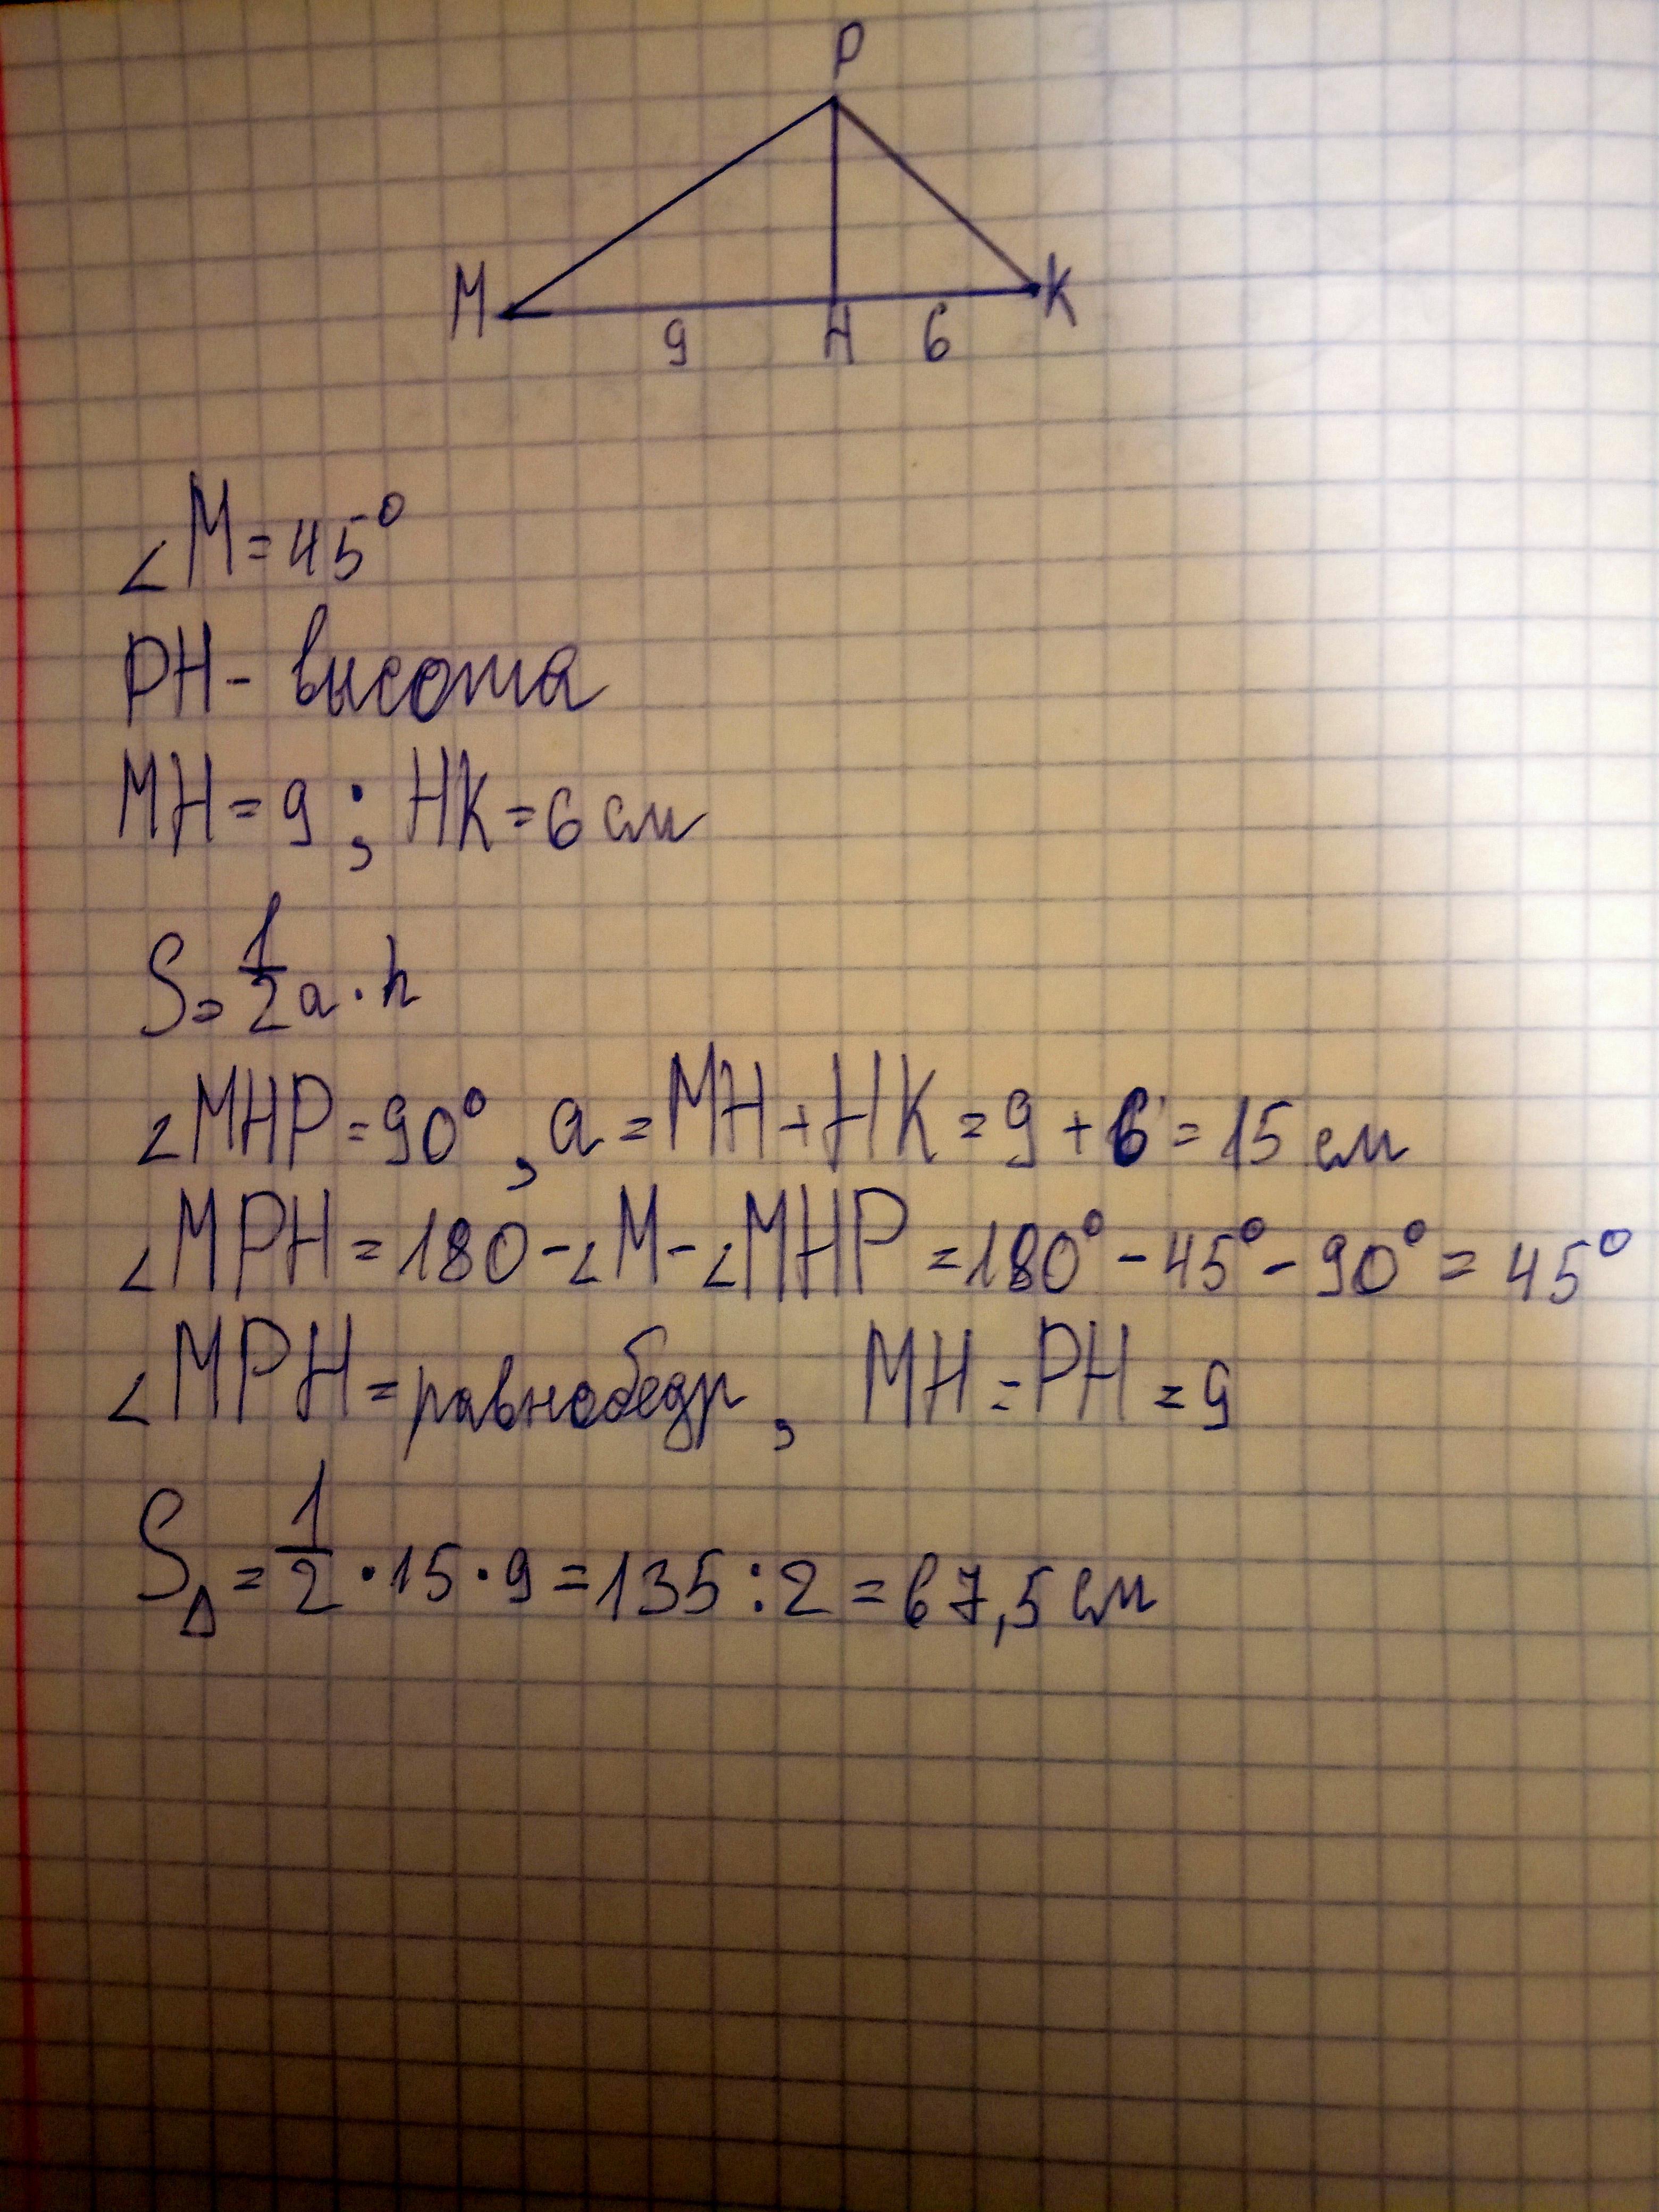 P
M
K
9
H
6
∠M=45°
PH- высота
MH=9; HK=6 см
S=1/2 a·h
∠MHP=90°, a=MH+HK=9+6=15 см
∠MPH=180-∠M-∠MHP=180°-45°-90°=45°
∠MPH=равнобедр, MH=PH=9
S△=1/2·15·9=135:2=67,5 см